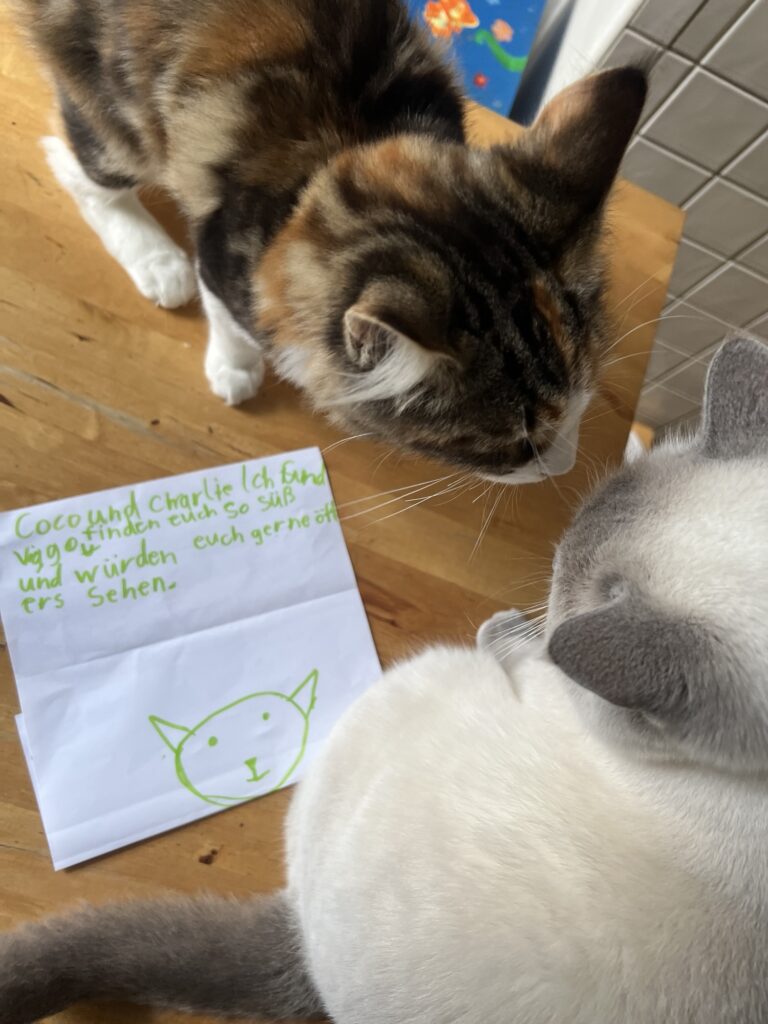 Coco und Charlie Ich und
Viggo finden euch so süß
und würden euch gerne öft
ers Sehen.